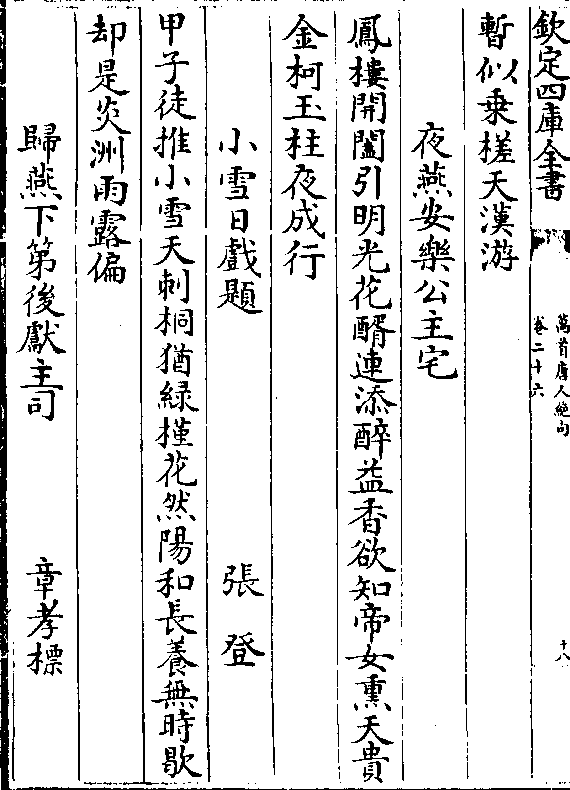 欽定四庫全書
萬首唐人絶句
卷二十六
十八
暫似乗槎天漢游
夜燕安樂公主宅
鳳樓開闔引明光花醑連添醉益香欲知帝女熏天貴
金柯玉柱夜成行
小雪日戲題
張登
甲子徒推小雪天刺桐猶緑槿花然陽和長養無時歇
却是炎洲雨露偏
歸燕下第後獻主司
章孝標